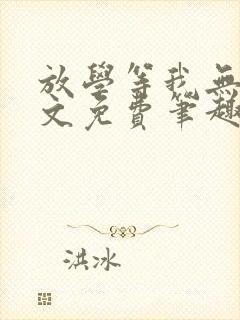 放學等我無
文免費筆趣
洪冰